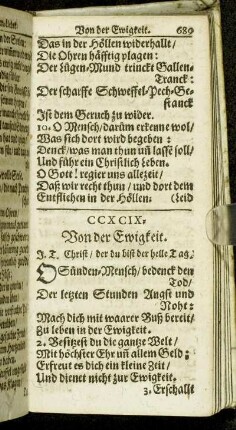 Von der Ewigkeit. 689
Das in der Höllen widerhallt/
Die Ohren häfftig plagen:
Der Lügen-Mund trinckt Gallen-
Tranck:
Der scharffe Schweffel-Pech-Ge-
stanck
Ist dem Geruch zu wider.
10. O Mensch/ darüm erkenne wol/
Was sich dort wird begeben:
Denck/ was man thun uñ lassē soll/
Und führ ein Christlich Leben.
O Gott! regier uns allezeit/
Daß wir recht thun/ und dort dem
Entfliehen in der Höllen. (Leid
CCXCIX.
Von der Ewigkeit.
J. T. Christ/ der du bist der helle Tag.
O Sünden-Mensch/ bedenck den
Tod/
Der letzten Stunden Angst und
Noht:
Mach dich mit waarer Buß bereit/
Zu leben in der Ewigkeit.
2. Besitzest du die gantze Welt/
Mit höchster Ehr uñ allem Geld:
Erfreut es dich ein kleine Zeit/
Und dienet nicht zur Ewigkeit.
3. Erschallt